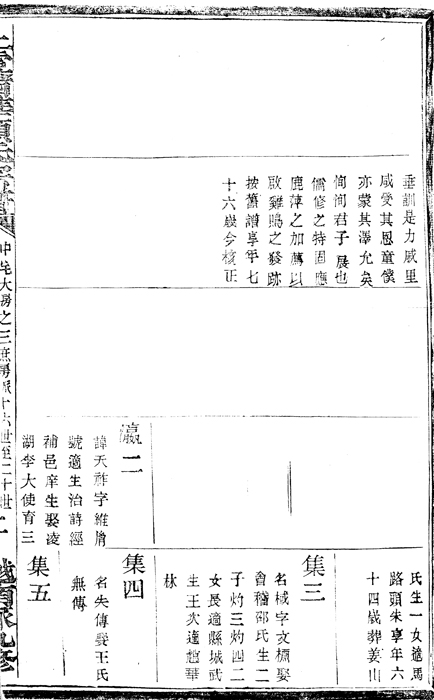 垂訓是力戚里
咸受其恩童僕
亦蒙其澤允矣
恂恂君子展也
儒修之特固應
鹿萍之加薦以
啟雞鳴之發跡
按舊譜享年七
十六歲今核正
瀛二
諱天祚字維
號適生治詩經
補邑庠生娶凌
湖李大使育三
氏生一女適馬
路頭朱享年六
十四歲葬姜山
集三
名棫字文標娶
會稽邵氏生二
子灼三灼四二
女長適縣城武
生王次適趙華
林
集四
名失傳娶王氏
無傳
集五
中宅大房之三庶房派十六世至二十世